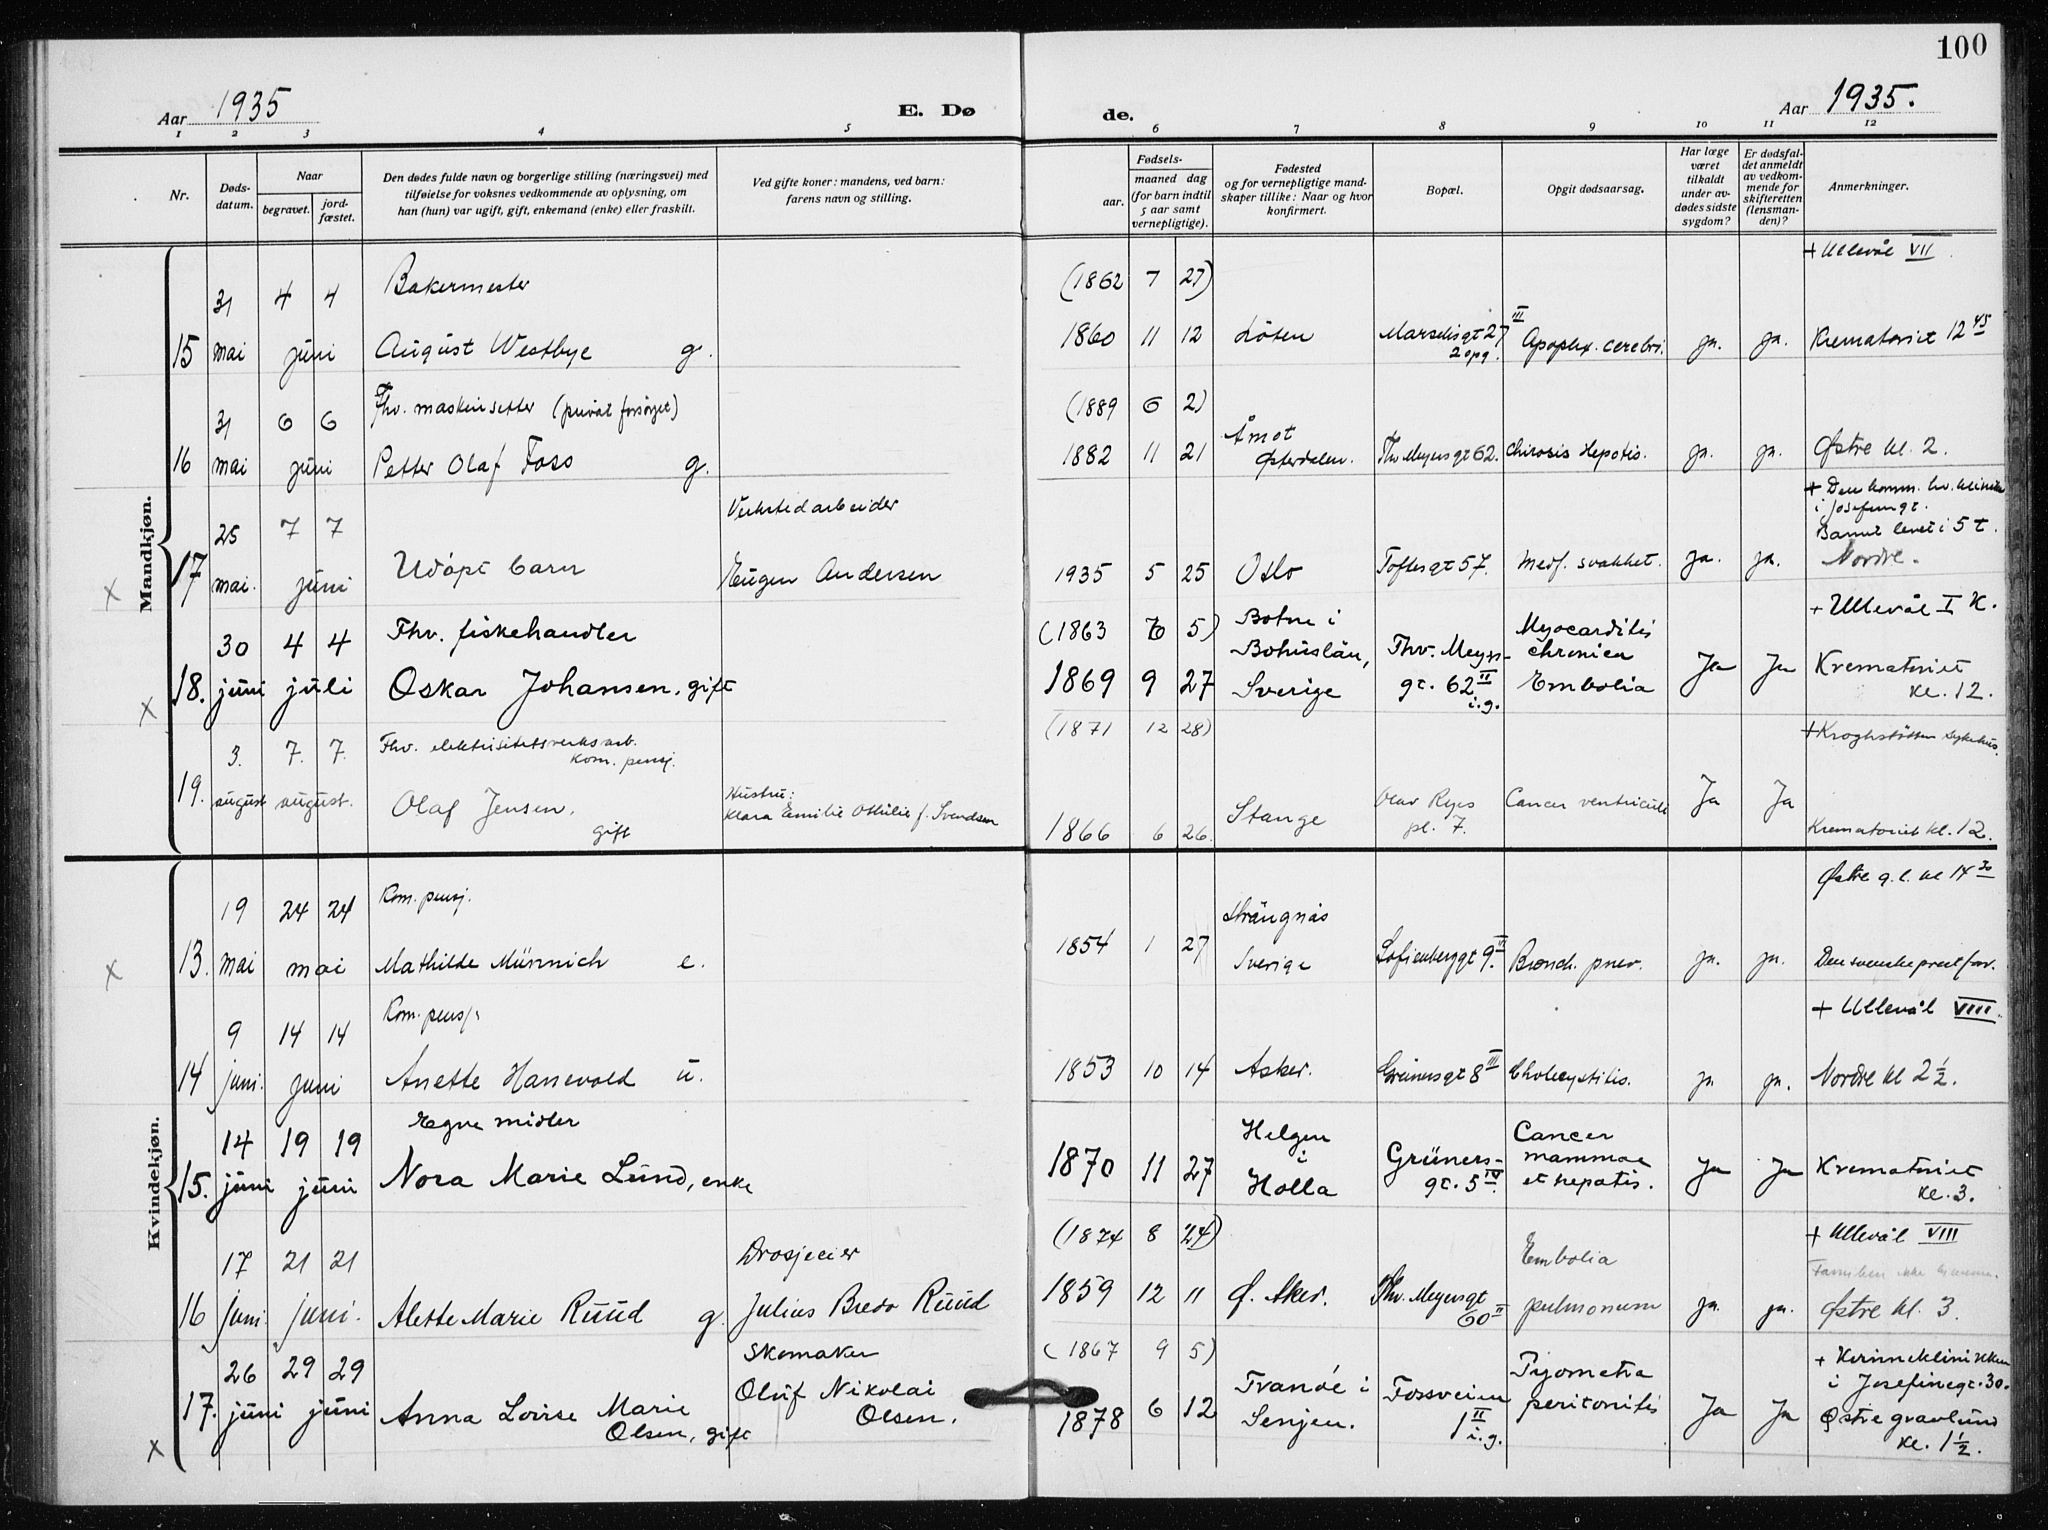 100
Aar 1935 E. Dø de. Aar 1935.
1 2 3 4 5 6 7 8 9 10 11 12
Nr.
Døds-
datum.
Naar
begravet.
jord-
fæstet.
Den dødes fulde navn og borgerlige stilling (næringsvei) med
tilføielse for voksnes vedkommende av oplysning, om
han (hun) var ugift, gift, enkemand (enke) eller fraskilt.
Ved gifte koner: mandens, ved barn:
farens navn og stilling.
Fødsels-
aar.
maaned dag
(for barn indtil
5 aar samt
vernepligtige).
Fødested
og for vernepligtige mand-
skaper tillike: Naar og hvor
konfirmert.
Bopæl.
Opgit dødsaarsag.
Har læge
været
tilkaldt
under av-
dødes sidste
sygdom?
Er dødsfal-
det anmeldt
av vedkom-
mende for
skifteretten
(lensman-
den)?
Anmerkninger.
Mandkjøn.
+ Ullevål VII
31 4 4 Bakermester (1862 7 27)
15 mai juni August Westbye g. 1860 11 12 Løten Marselisgt 27 III Apoplex. cerebri. ja. ja. Krematoriet 12 45
2 opg.
31 6 6 Fhv. maskinsetter (privat forsørget) (1889 6 2)
16 mai juni Petter Olaf Foss g. 1882 11 21 Åmot
Østerdalen. Thv. Meyersgt 62. Chirosis Hepatis. ja. ja. Østre kl. 2.
+ Den komm. kv. klinikk
i Josefinegt.
Barnet levet i 5 t.
25 7 7 Verkstedarbeider
17 mai. juni Udøpt barn Eugen Andersen 1935 5 25 Oslo Toftesgt 57. Medf. svakhet. ja. ja. Nordre.
x
+ Ullevål I K.
30 4 4 Fhv. fiskehandler (1863 7 5) Botne i Myocarditis
18. juni juli Oskar Johansen, gift 1869 9 27 Bohuslän, Sverige Thv. Meyers-
gt. 62 II
i.g. chronica
Embolia Ja Ja Krematoriet
kl. 12.
x
(1871 12 28) + Kroghstøtten sykehus.
3. 7. 7. Fhv. elektrisitetsverksarb.
kom. pensj.
19. august august. Olaf Jensen.
gift
Hustru:
Klara Emilie Othilie f. Svendsen
1866 6 26. Stange Olav Ryes
pl. 7. Cancer ventriculi Ja Ja Krematoriet kl. 12.
Kvindekjøn.
Østre g. l. kl 14 30
19 24 24 Kom. pensj.
13. mai mai Mathilde Münnich e. 1854 1 27 Strängnäs
Sverige Sofienberggt 9. Bronch. pnev. ja. ja. Den svenske prest forr.
x
+ Ullevål VIII.
9 14 14 Kom. pensj.
14 juni. juni Anette Hanevold u. 1853 10 14 Asker. Greinersgt 8 III Cholecystitis. ja ja. Nordre kl 2 ½.
14 19 19 Egne midler
15. juni juni Nora Marie Lund, enke 1870 11 27 Helgen
i
Holla Grüners-
gt. 5 IV. Cancer
mammae
et hepatis. Ja Ja Krematoriet
kl. 3.
(1874 8 24) + Ullevål VIII
17 21 21 Drosjeeier
16 juni. juni. Alette Marie Ruud g. Julius Bredo Ruud 1859 12 11 Ø. Aker. Thv. Meyersgt
60 II Embolia
pulmonum ja. ja. Østre kl. 3.
(1867 9 5)
26 29 29 Skomaker
17. juni juni Anna Lovise Marie
Olsen, gift Oluf Nikolai
Olsen. 1878 6 12 Tranöe i
Senjen. Fossveien
1 II
i.g. Pyometra
peritonitis Ja Ja + Kvinneklinikken
i Josefinegt. 30.
Østre gravlund
kl. 1 ½.
x